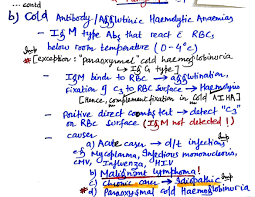 ... contd
b) Cold Antibody/Agglutinin Haemolytic Anaemias
- IgM type Abs that react c̄ RBCs
below room temperature (0-4°C)
Imp
* [exception: "paroxysmal" cold haemoglobinuria
↳ IgG type]
- IgM binds to RBC → agglutination,
fixation of C3 to RBC surface → Haemolysis
[Hence, complement fixation in Cold AIHA]
- Positive direct coombs test → detect "C3"
on RBC surface (IgM not detected!)
- causes Imp
a) Acute cases → d/t infections
e.g Mycoplasma, Infectious mononucleosis,
CMV, Influenza, HIV
b) Malignant Lymphoma!
c) Chronic cases → Idiopathic Imp
* d) Paroxysmal Cold Haemoglobinuria